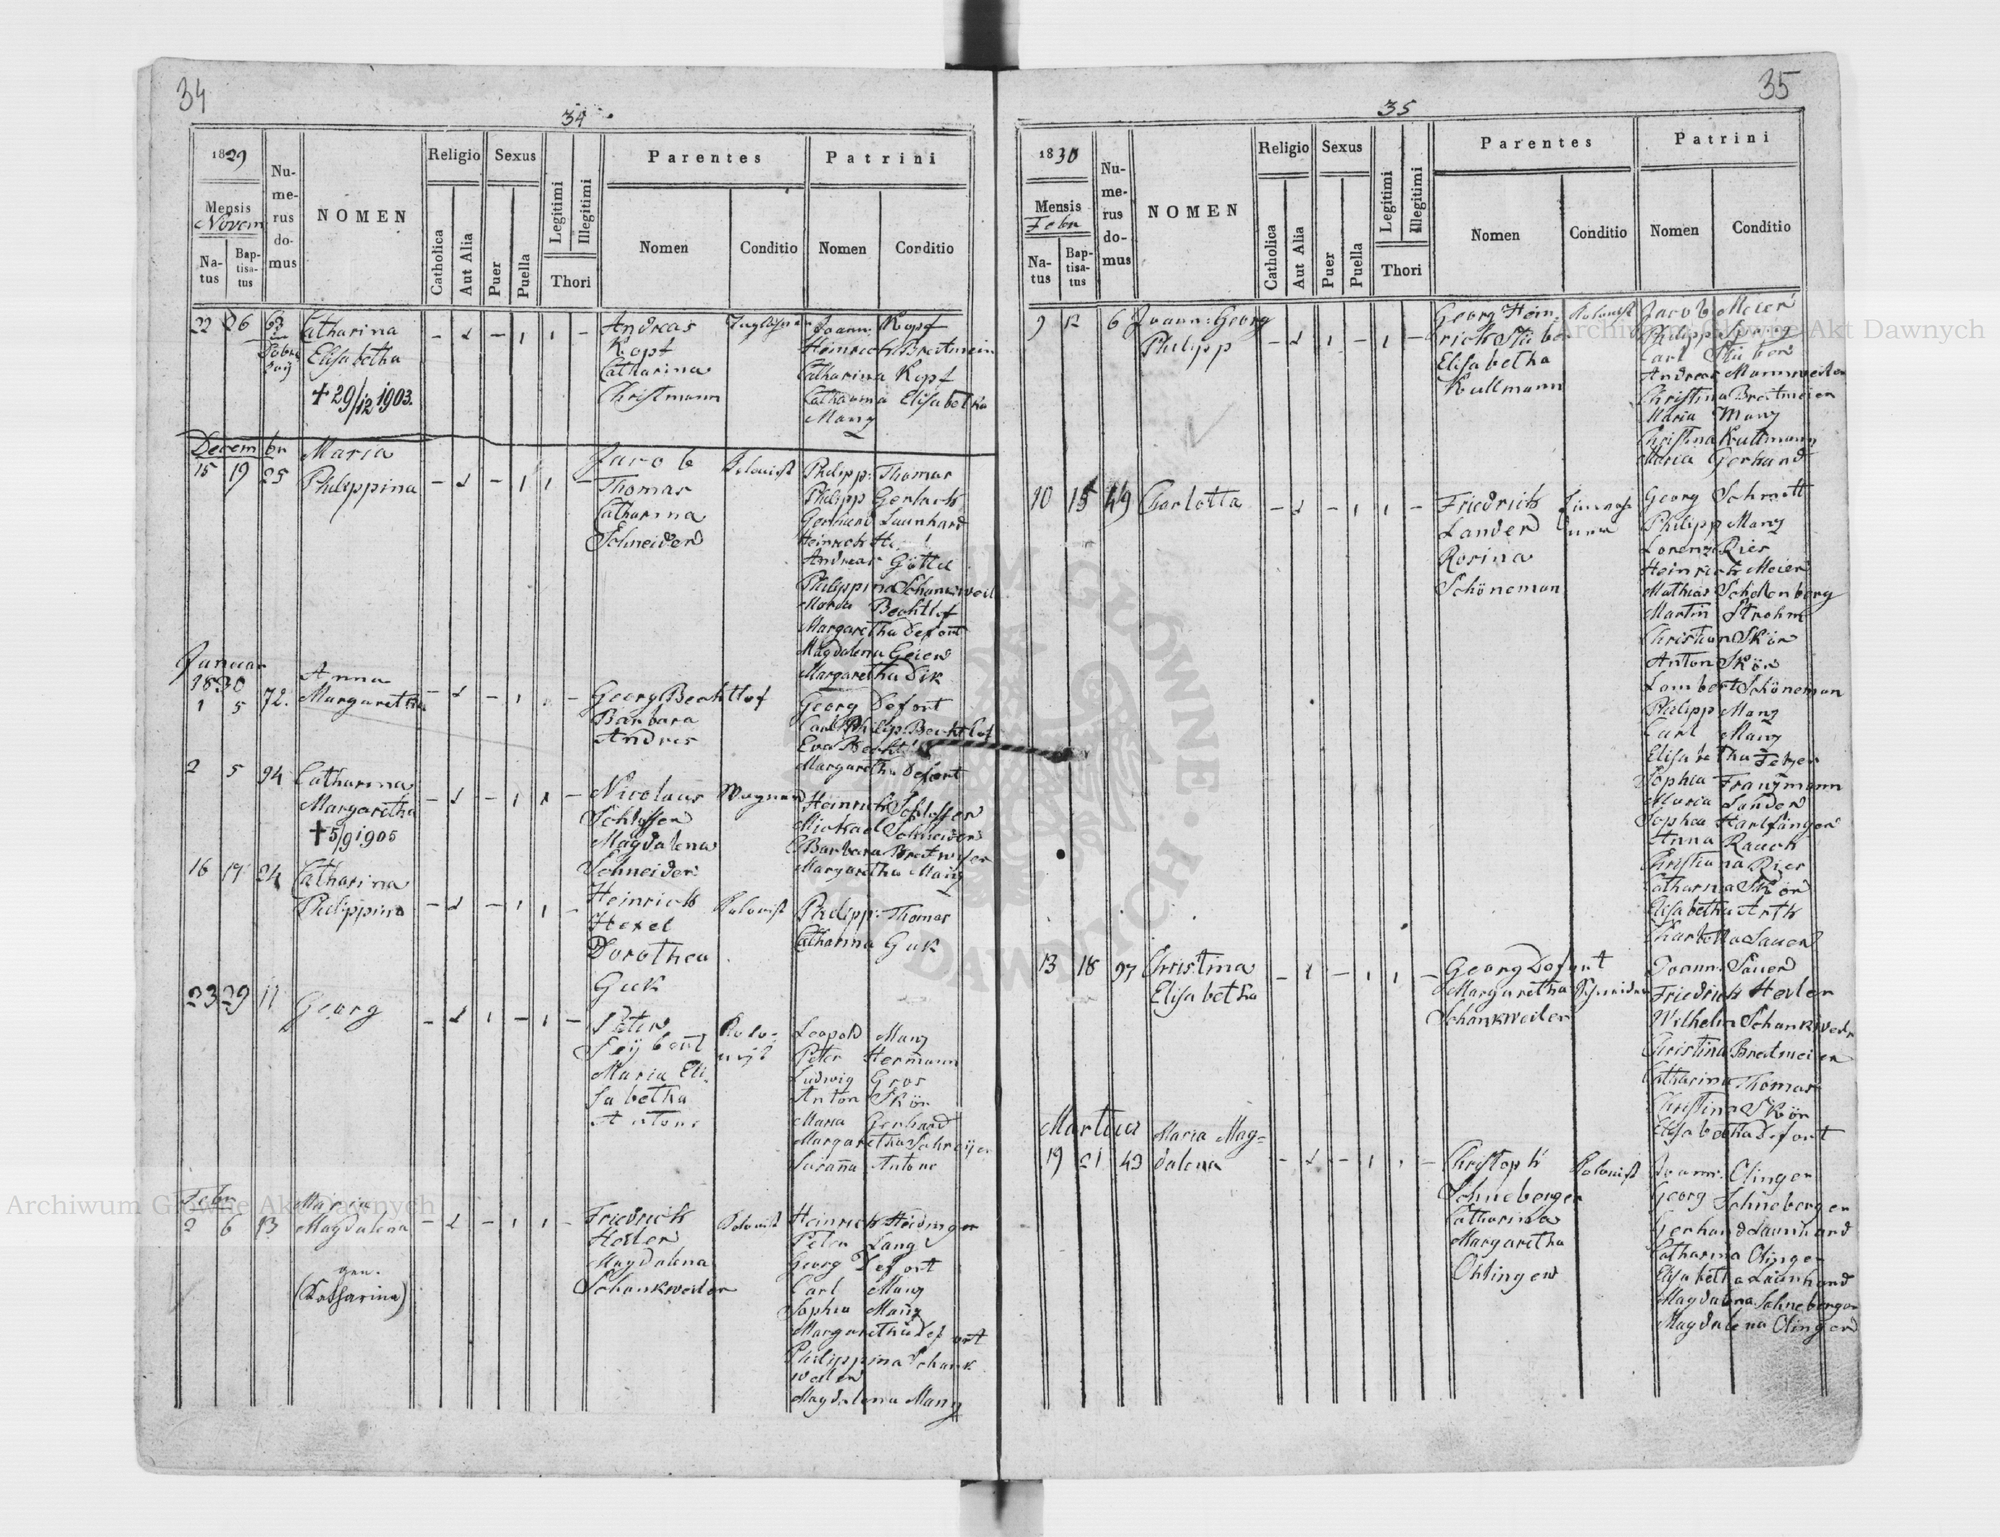 34
34
1829
Mensis
Novem
Na-
tus
Bap-
tisa-
tus
Nu-
me-
rus
do-
mus
NOMEN
Religio
Catholica
Aut Alia
Sexus
Puer
Puella
Legitimi
Illegitimi
Thori
Parentes
Nomen
Conditio
Patrini
Nomen
Conditio
22 26 Catharina
Elisabetha
+ 29/12 1903.
Andreas
Kopf
Catharina
Christmann
Joann: Kopf
Heinrich Breitmeier
Catharina Kopf
Catharina Elisabetha
Manz
Decembr
15 19 25 Maria
Philippina
Jacob
Thomas
Catharina
Schneider
Kolonist
Philipp: Thomas
Philipp Gerlach
Gerhard Launhard
Heinrich
Andreas Göttel
Philippina Schankweil
Maria Bechtlof
Margaretha Defort
Magdalena Geier
Margaretha Dik
Januar
1830
1 5 72. Anna
Margaretha
Georg Bechtlof
Barbara
Andres
Georg Defort
Carl Philip Bechtlof
Eva Becht
Margaretha Defort
2 5 94 Catharina
Margaretha
+ 5/9 1905
Nicolaus
Schlosser
Magdalena
Schneider
Wagner
Heinrich Schlosser
Michael Schneider
Barbara
Margaretha Manz
16 17 24 Catharina
Philippina
Heinrich
Hexel
Dorothea
Guk
Kolonist
Philipp: Thomas
Catharina Guk
23 29 11 Georg
Peter
Maria Eli-
sabetha
Antoni
Kolo-
nist
Leopold Manz
Peter Hermann
Ludwig Gros
Anton Skör
Maria Gerhard
Margaretha Schreijer
Susanna Antoni
Febr
2 6 13 Maria
Magdalena
gen.
(Katharina)
Friedrich
Hexler
Magdalena
Schankweiler
Kolonist
Heinrich Heidinger
Peter Lang
Georg Defort
Carl Manz
Sophia Manz
Margaretha Defort
Philippina Schank
weiler
Magdalena Manz
35
35
1830
Mensis
Febr
Na-
tus
Bap-
tisa-
tus
Nu-
me-
rus
do-
mus
NOMEN
Religio
Catholica
Aut Alia
Sexus
Puer
Puella
Legitimi
Illegitimi
Thori
Parentes
Nomen
Conditio
Patrini
Nomen
Conditio
9 12 6 Joann: Georg
Philipp
Georg Hein-
rich Stüber
Elisabetha
Kullmann
Kolonist
Jacob Meier
Philipp Georg
Carl Stüber
Andreas Mannweiler
Christina Breitmeier
Maria Manz
Christina Kullmann
Maria Gerhard
10 15 49 Charlotta
Friedrich
Lander
Rosina
Schöneman
Georg Schmitt
Philipp Manz
Lorenz Rier
Heinrich Meier
Mathias Schellenberg
Martin Strohm
Christian Skör
Anton Skör
Lambert Schöneman
Philipp Manz
Carl Manz
Elisabetha Fetzer
Sophia Franzmann
Maria Lander
Sophia Harlfinger
Anna Rauch
Christiana Rier
Catharina Skör
Elisabetha Arth
Charlotta Sauer
13 18 97 Christina
Elisabetha
Georg Defort
Margaretha
Schankweiler
Schneider
Joann: Sauer
Friedrich Hexler
Wilhelm Schankweiler
Christina Breitmeier
Catharina Thomas
Christina Skör
Elisabetha Defort
Martius
19 21 43 Maria Mag=
dalena
Christoph
Schneberger
Catharina
Margaretha
Ohlinger
Kolonist
Joann: Olinger
Georg Schneberger
Gerhard Launhard
Catharina Olinger
Elisabetha Launhard
Magdalena Schneberger
Magdalena Olinger
Archiwum Główne Akt Dawnych
Archiwum Główne Akt Dawnych